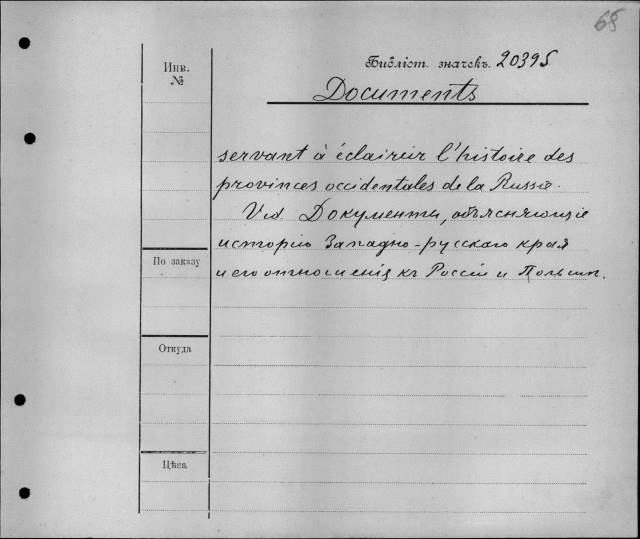 65
Инв.
№
Библіот. значекъ. 20395
Documents
servant à éclaircir l'histoire des
provinces occidentales de la Russie.
Vid. Документы, объясняющіе
исторію Западно-русскаго края
и его отношенія къ Россіи и Польшѣ.
По заказу
Откуда
Цѣна